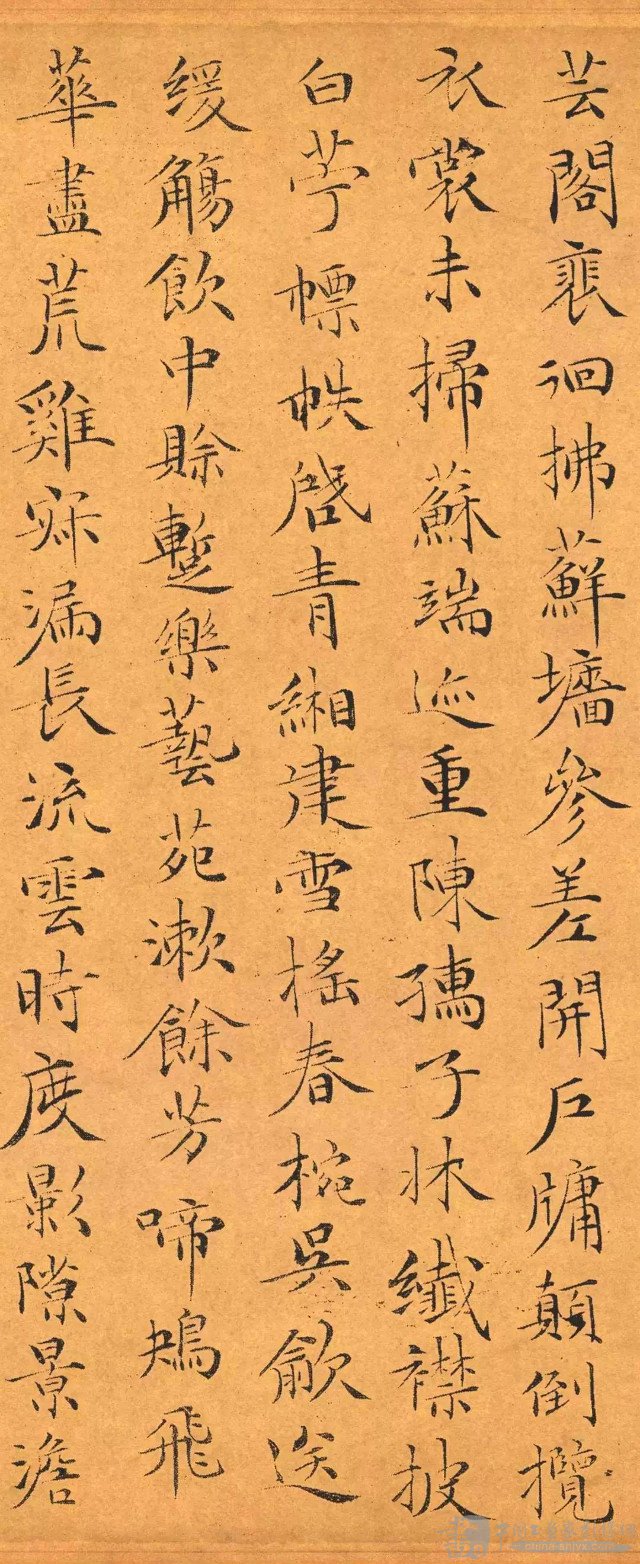 芸閣裵徊拂蘚墻參差開戶牖顛倒攬
衣裳未掃蘇端迹重陳孺子牀纖襟披
白苧幖帙啓青緗建雪搖春椀吳歈送
緩觴飲中賒蹔樂藝苑漱餘芳啼鴂飛
華盡荒雞寐漏長流雲時度影隙景澹